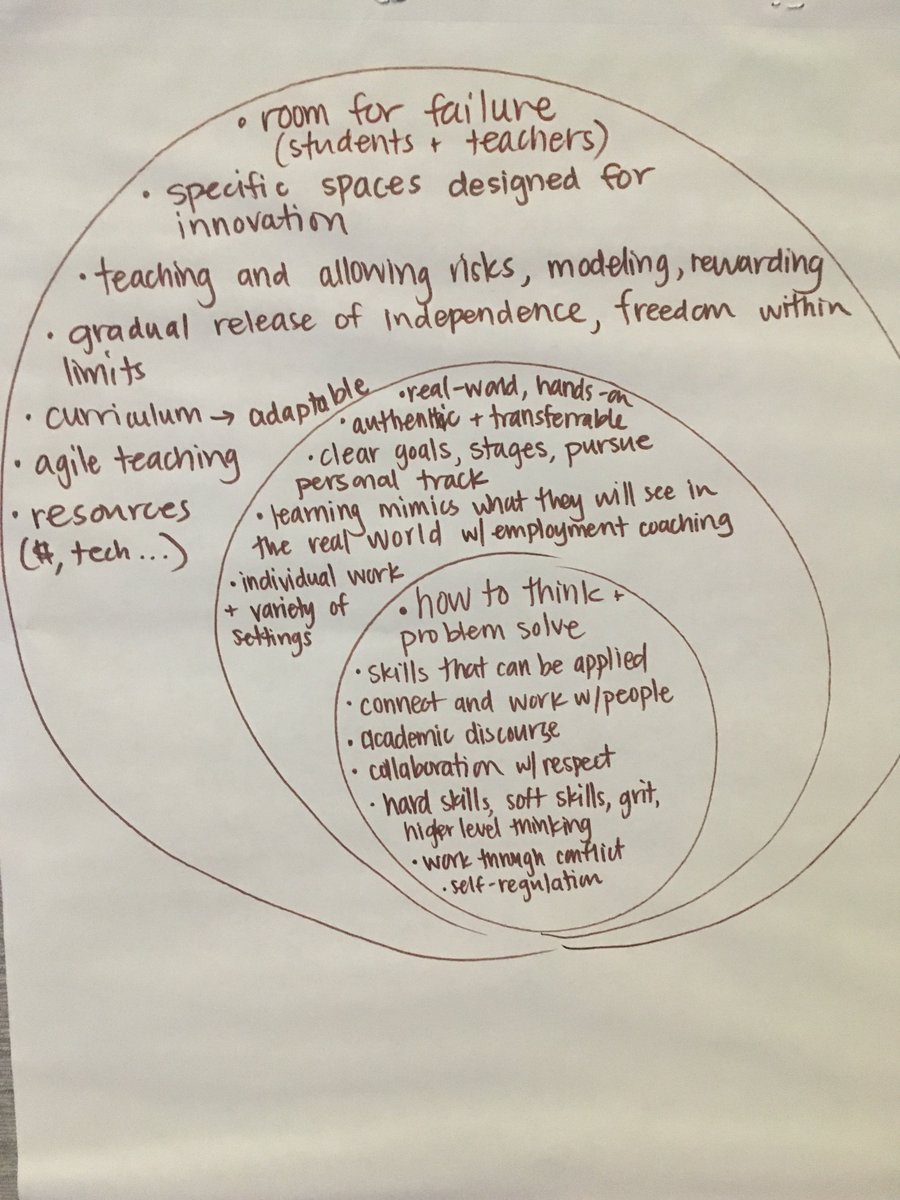 • room for failure
(students + teachers)
• specific spaces designed for
innovation
• teaching and allowing risks, modeling, rewarding
• gradual release of independence, freedom within
limits
• curriculum → adaptable
• agile teaching
• resources
($, tech...)
• real-world, hands-on
• authentic + transferrable
• clear goals, stages, pursue
personal track
• learning mimics what they will see in
the real world w/ employment coaching
• individual work
+ variety of
settings
• how to think +
problem solve
• skills that can be applied
• connect and work w/people
• academic discourse
• collaboration w/ respect
• hard skills, soft skills, grit,
higer level thinking
• work through conflict
• self-regulation